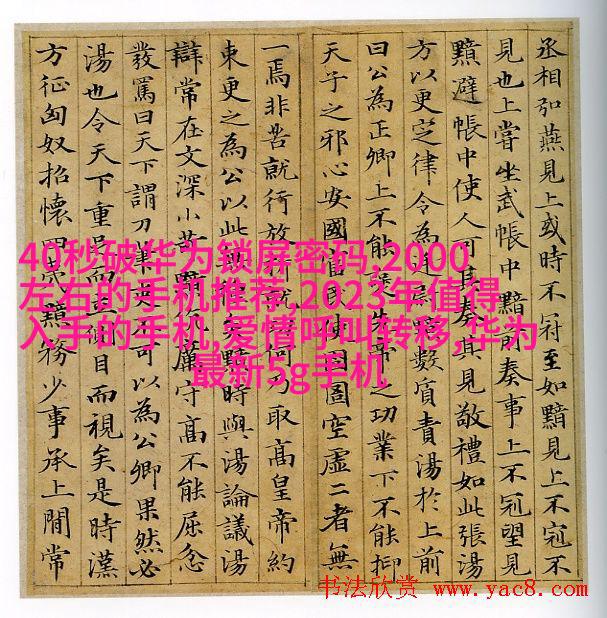 丞相弘燕見上或時不冠至如黯見上不冠不
見也上嘗坐武帳中黯奏事上不冠望見
黯避帳中使人可其奏其見敬禮如此張湯
方以更定律令為廷尉黯數質責湯於上前
曰公為正卿上不能先帝之功業下不能抑
天子之邪心安國富民囹圄空虛二者無
一焉非苦就行放就功何取高皇帝約
束更之為公以此黯時與湯論議湯
辯常在文深小苛黯伉厲守高不能屈忿
發罵曰天下謂刀筆吏不可以為公卿果然必
湯也令天下重足而立側目而視矣是時漢
方征匈奴招懷四夷黯務少事承上間常
40秒破华为锁屏密码,2000
左右的手机推荐,2023年值得
入手的手机,爱情呼叫转移,华为
最新5g手机
书法欣赏 www.yac8.com